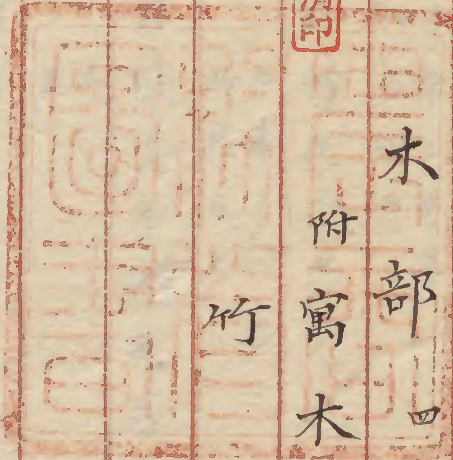 木部四
附寓木
竹